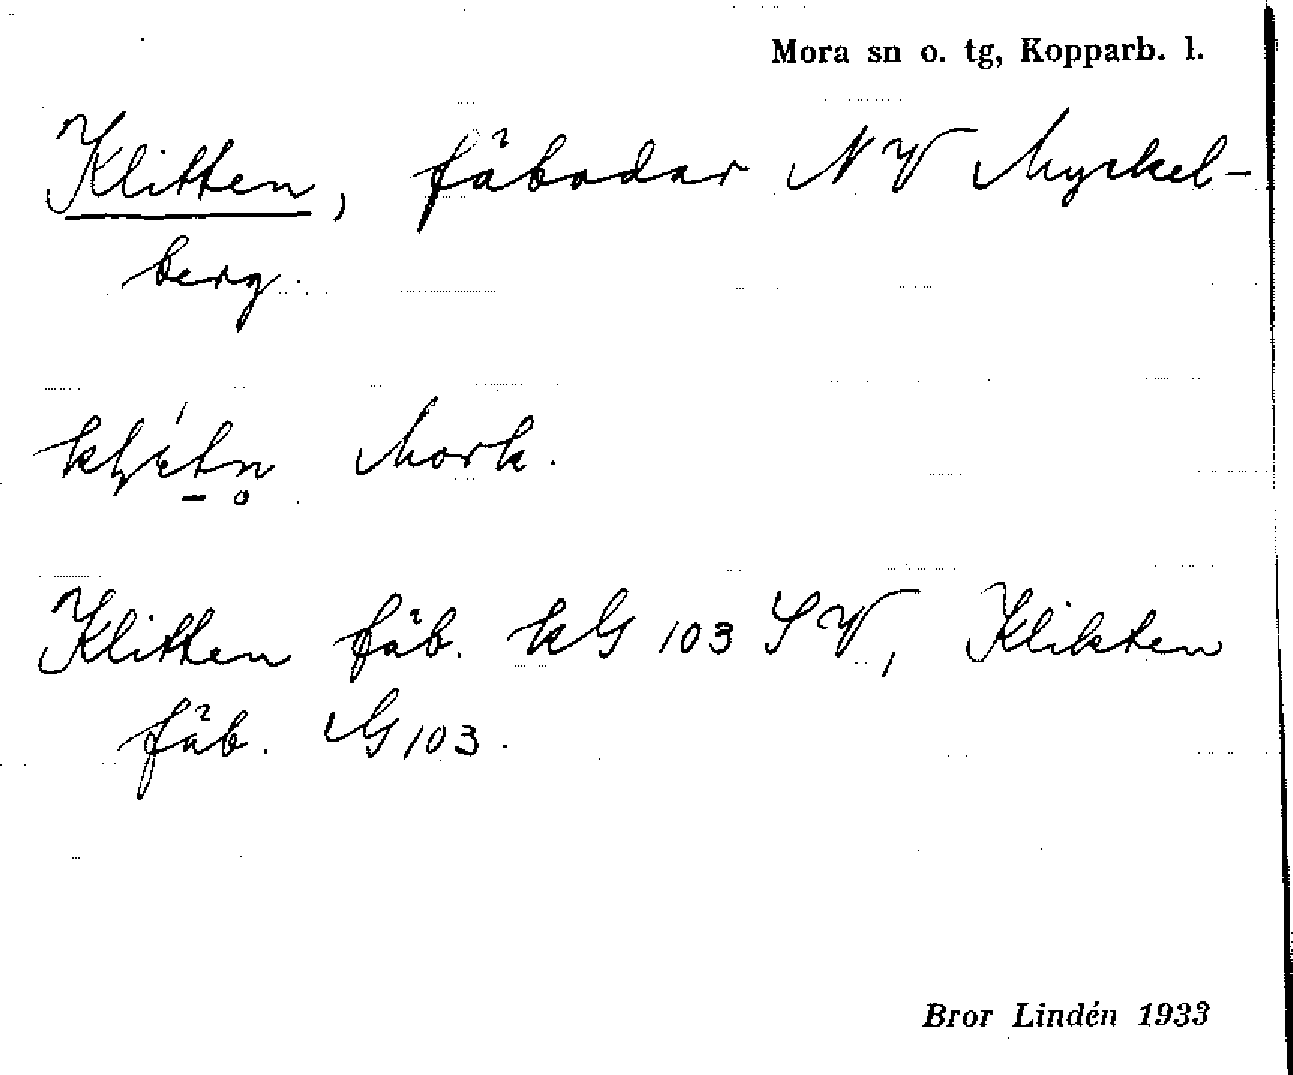 Mora sn o. tg, Kopparb. l.
Klitten, fäbodar NV Myckel-
berg.
Mork.
Klitten fäb. kG 103 SV, Klikten
fäb. G 103.
Bror Lindén 1933